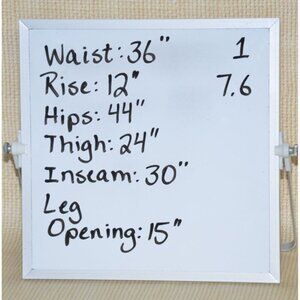 Waist: 36" 1
Rise: 12" 7.6
Hips: 44"
Thigh: 24"
Inseam: 30"
Leg
Opening: 15"